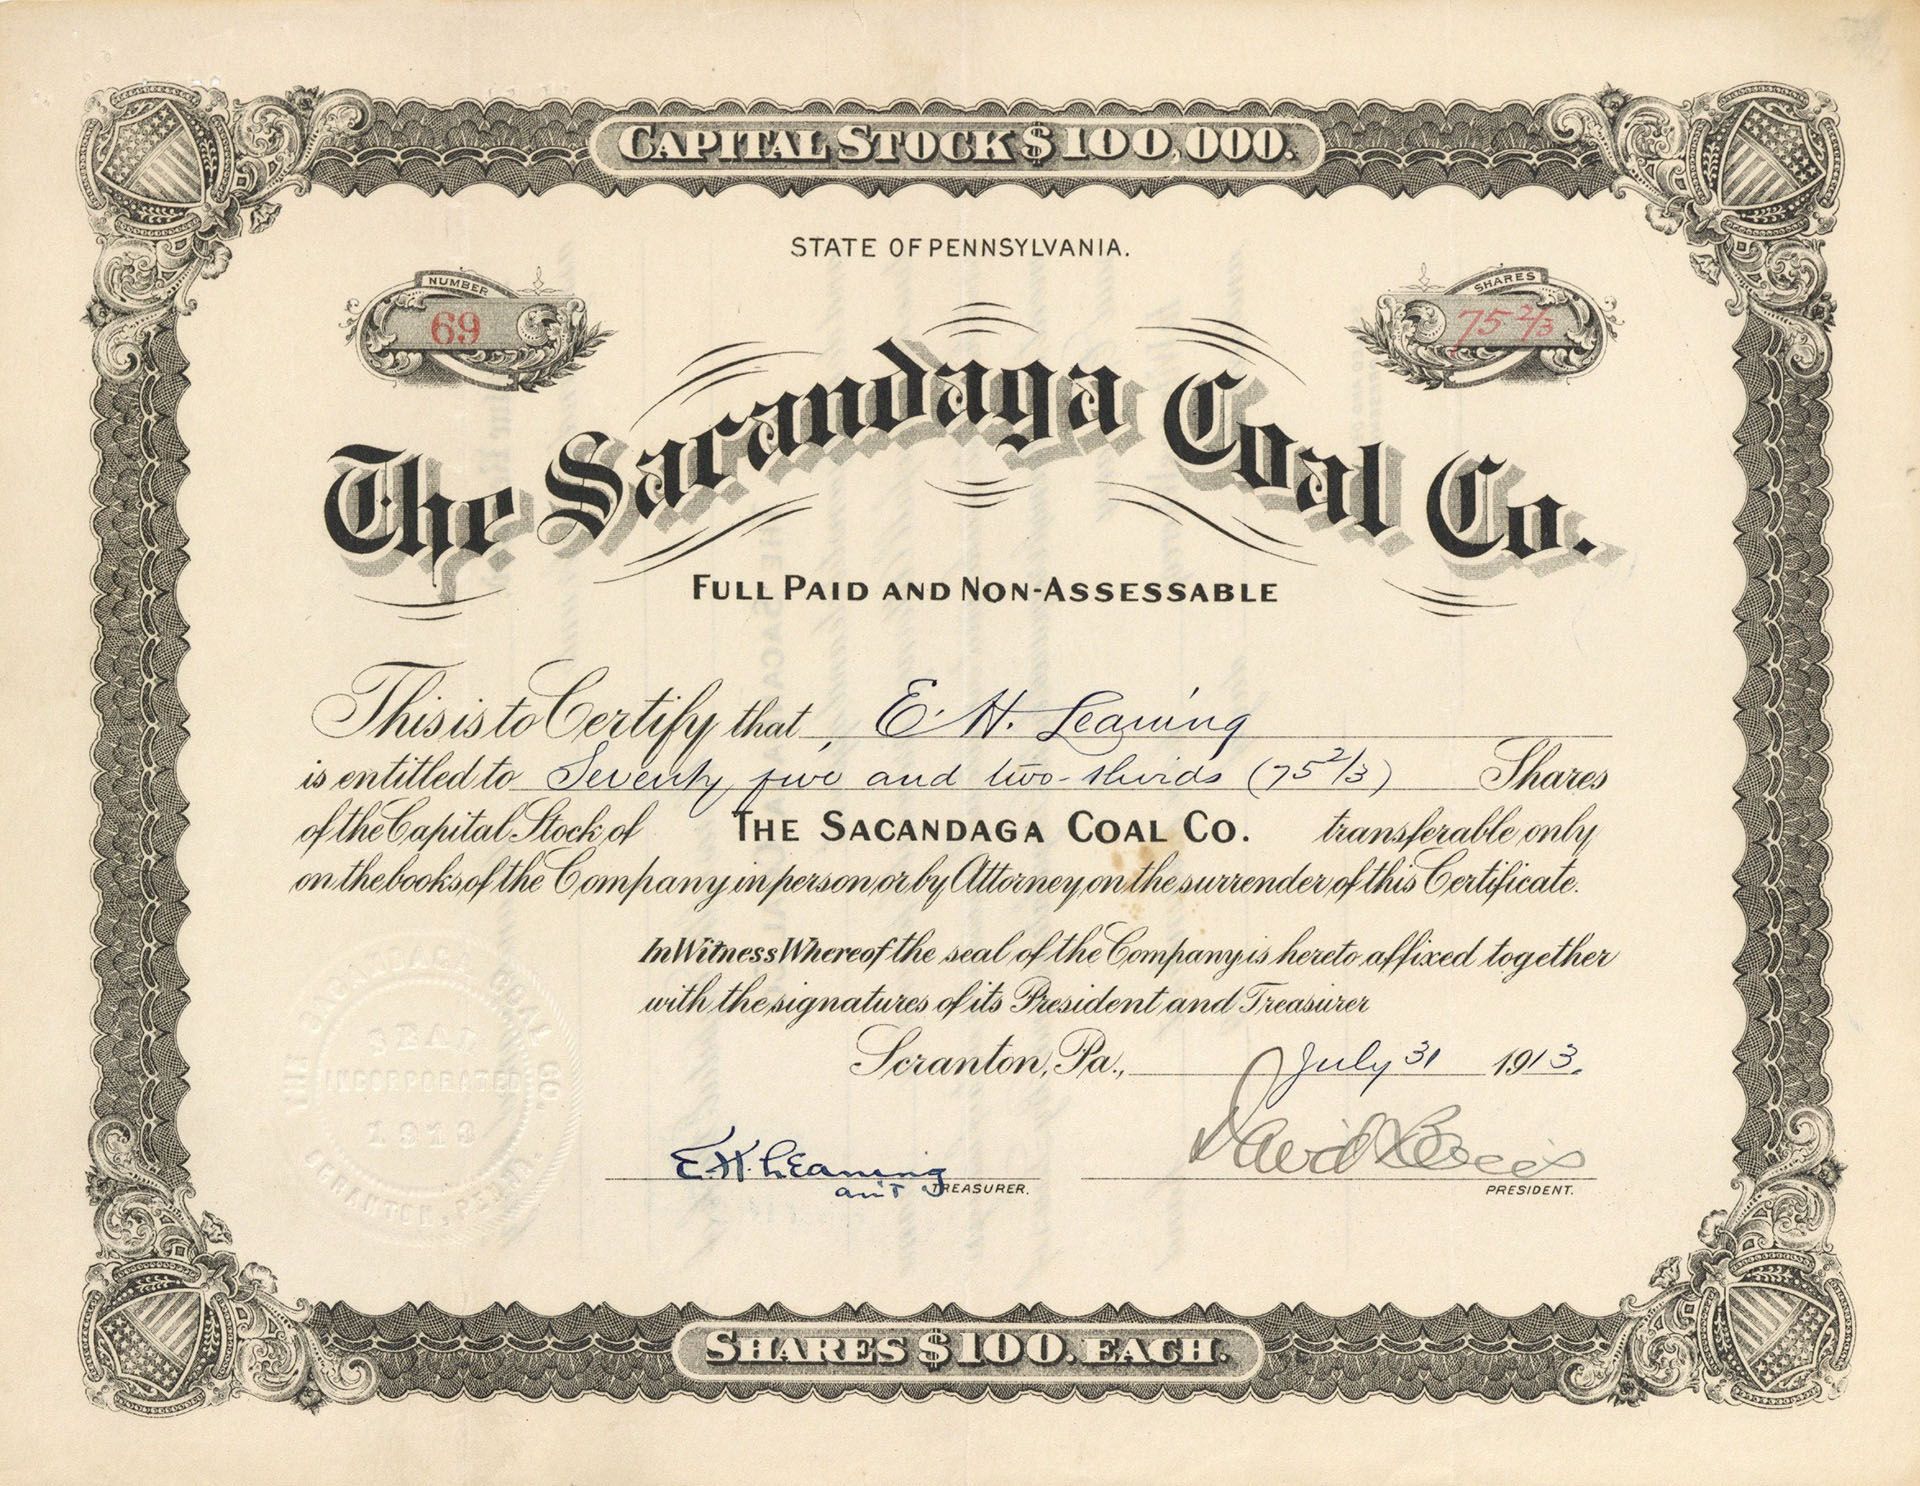 CAPITAL STOCK $100,000.
STATE OF PENNSYLVANIA.
NUMBER
69
SHARES
75 2/3
The Sacandaga Coal Co.
FULL PAID AND NON-ASSESSABLE
This is to Certify that E. H. Leaning
is entitled to Seventy five and two-thirds (75 2/3) Shares
of the Capital Stock of THE SACANDAGA COAL CO. transferable only
on the books of the Company in person or by Attorney on the surrender of this Certificate.
In Witness Whereof the seal of the Company is hereto affixed together
with the signatures of its President and Treasurer
Scranton, Pa., July 31 1913.
THE SACANDAGA COAL CO.
SEAL
INCORPORATED
1913
SCRANTON, PENNA.
E. H. Leaning
TREASURER.
David
PRESIDENT.
SHARES $100. EACH.